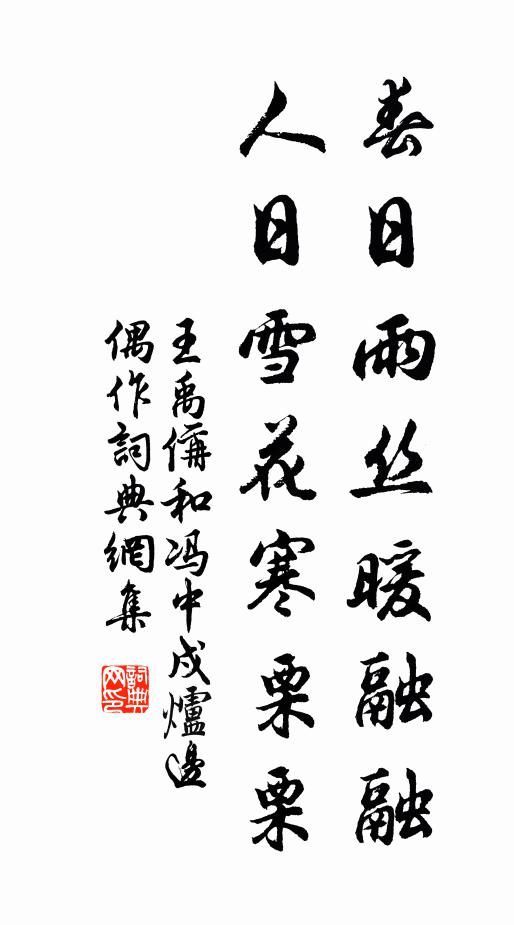 春日雨丝暖融融
人日雪花寒栗栗
王禹偁和冯中戍爐邊
偶作詞典網集
詞典网印